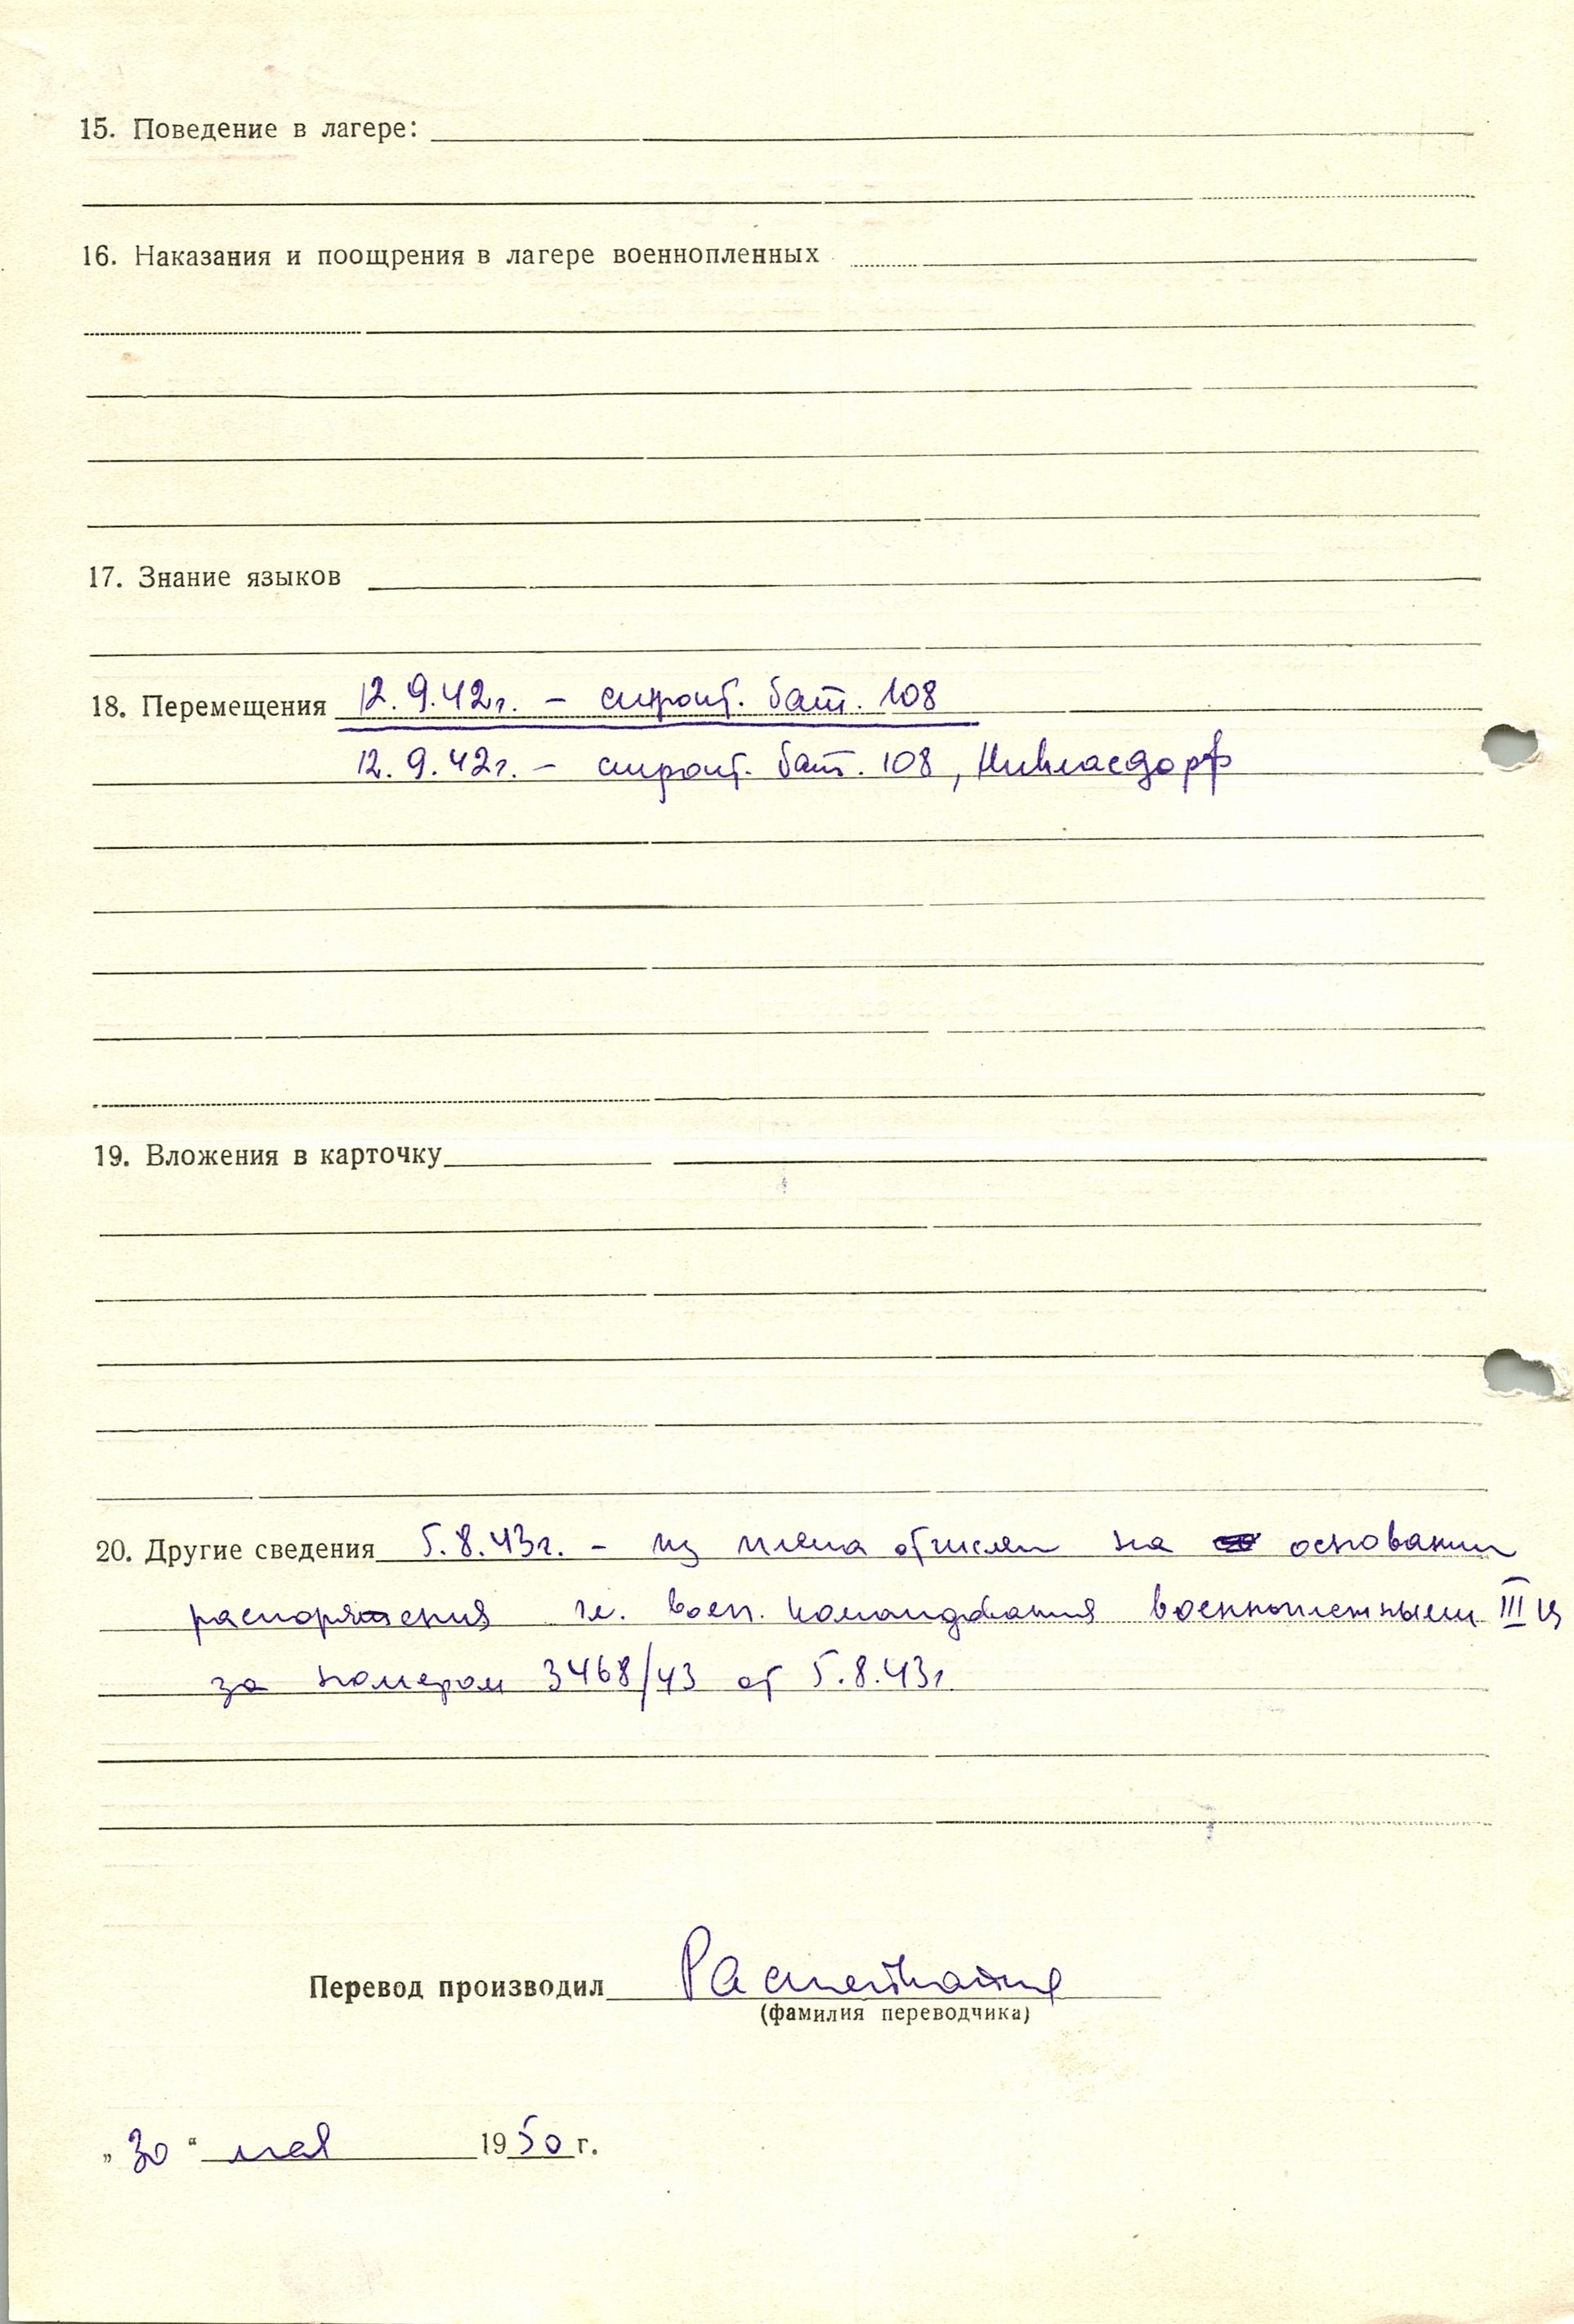 15. Поведение в лагере:
16. Наказания и поощрения в лагере военнопленных
17. Знание языков
18. Перемещения 12.9.42г. – строит. бат. 108
12.9.42г. – строит. бат. 108, Никласдорф
19. Вложения в карточку
20. Другие сведения 5.8.43г. – из плена отчислен на основании
распоряжения гл. воен. командования военнопленными III
за номером 3468/43 от 5.8.43г.
Перевод производил
(фамилия переводчика)
„30“ мая 1950 г.